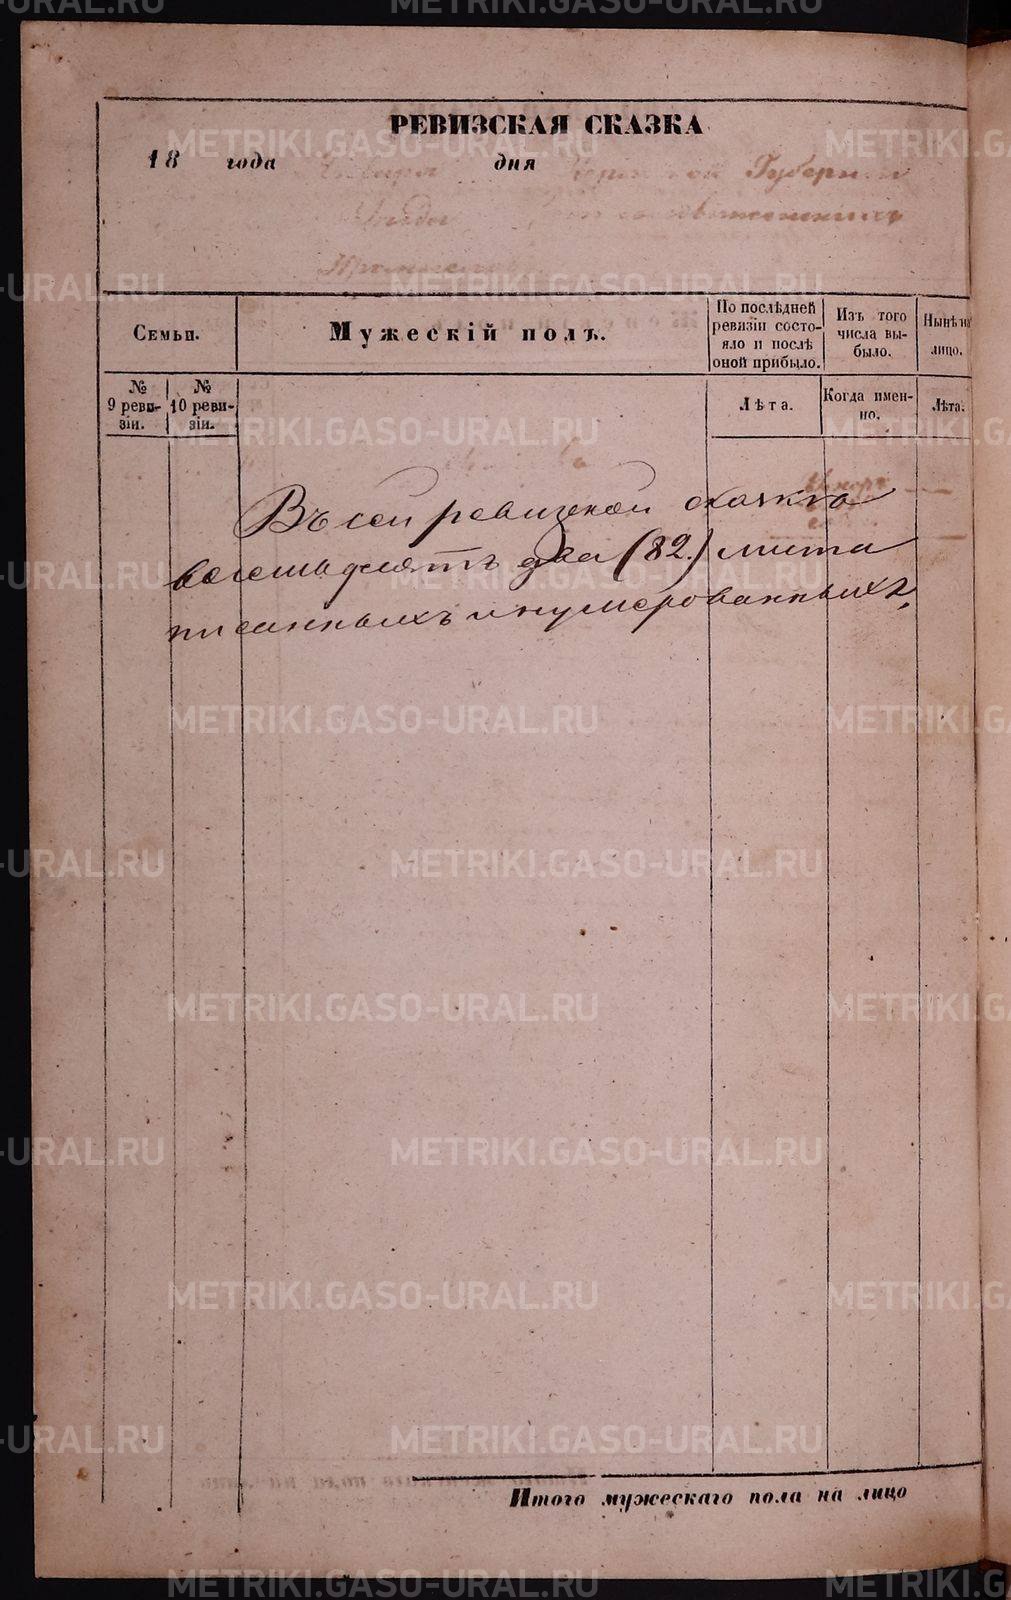 РЕВИЗСКАЯ СКАЗКА
18 года дня Губернии
Семьи.
Мужескій полъ.
По послѣдней ревизіи состо-
яло и послѣ
оной прибыло.
Изъ того
числа вы-
было.
Нынѣ на
лицо.
№
9 реви-
зіи.
№
10 реви-
зіи.
Лѣта.
Когда имен-
но.
Лѣта.
Въ сей ревизской сказкѣ
восемьдесятъ два (82.) листа
писанныхъ и нумерованныхъ,
Итого мужескаго пола на лицо
METRIKI.GASO-URAL.RU